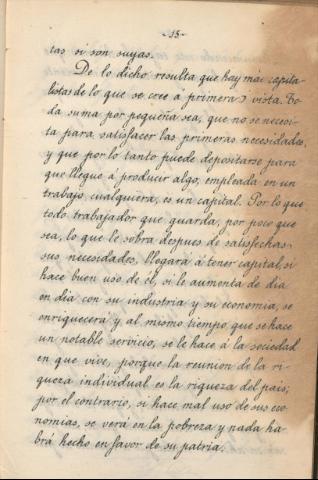 -15-
tas si son suyas.
De lo dicho resulta que hay mas capita-
listas de lo que se cree á primera vista. To-
da suma por pequeña sea, que no se necesi-
ta para satisfacer las primeras necesidades,
y que por lo tanto puede depositarse para
que llegue á producir algo, empleada en un
trabajo cualquiera, es un capital. Por lo que
todo trabajador que guarda, por poco que
sea, lo que le sobra despues de satisfechas
sus necesidades, llegará á tener capital, si
hace buen uso de él, si le aumenta de dia
en dia con su industria y su economia, se
enriquecerá y al mismo tiempo que se hace
un notable servicio, se le hace á la sociedad
en que vive, porque la reunion de la ri-
queza individual es la riqueza del pais;
por el contrario, si hace mal uso de sus eco-
nomias, se verá en la pobreza y nada ha-
brá hecho en favor de su patria.